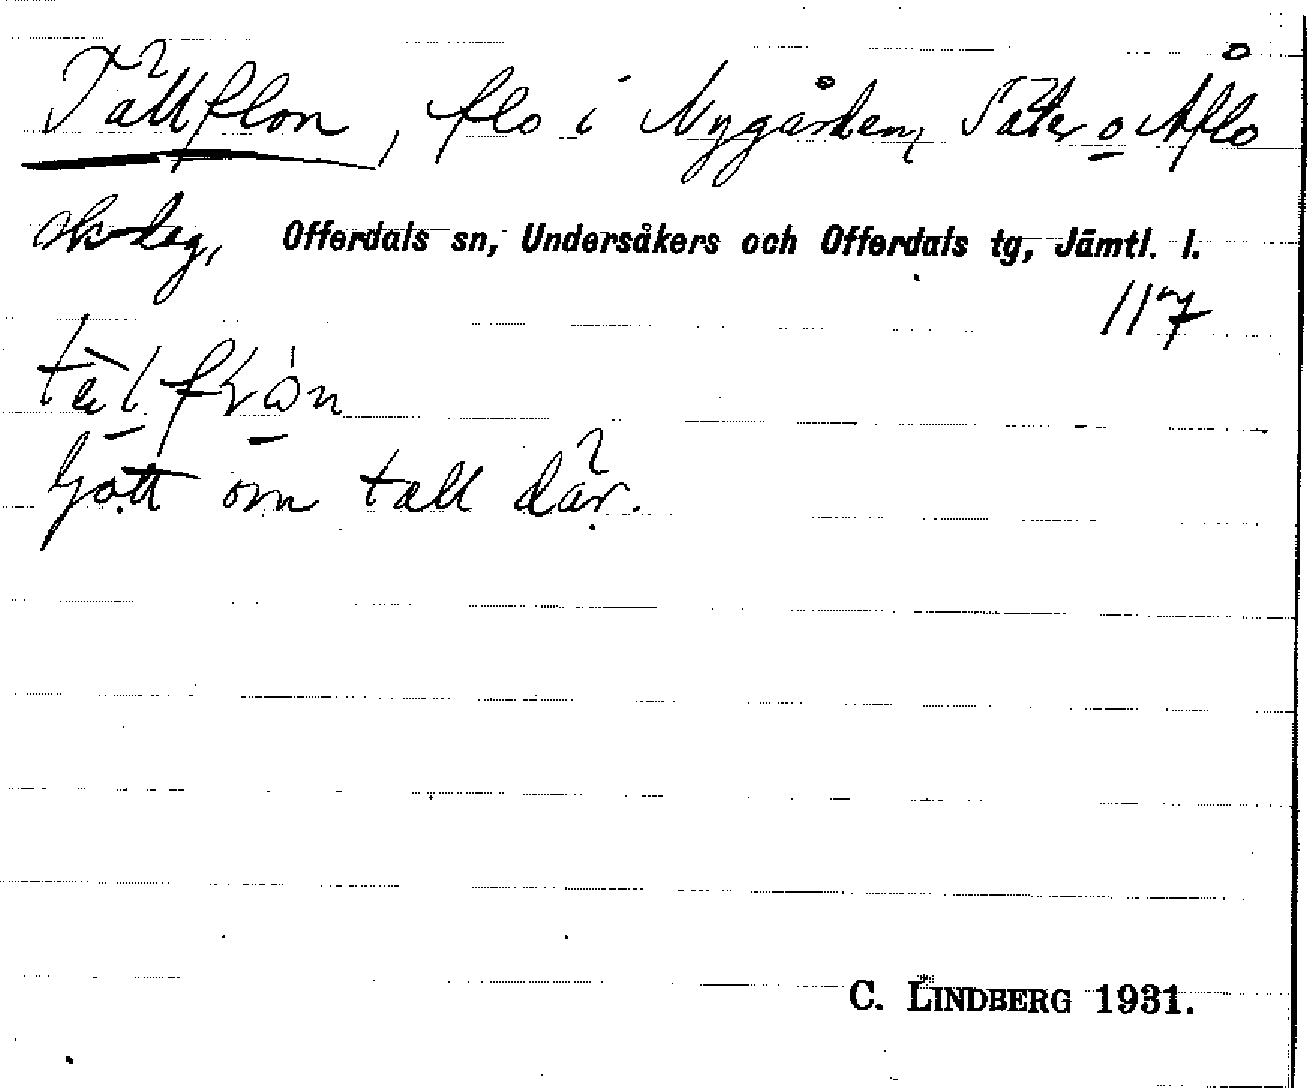 Tällflon, flo i Nygården, Säter o Åflo
sk.lag, Offerdals sn, Undersåkers och Offerdals tg, Jämtl. l.
117
Gott om tall där.
C. LINDBERG 1931.